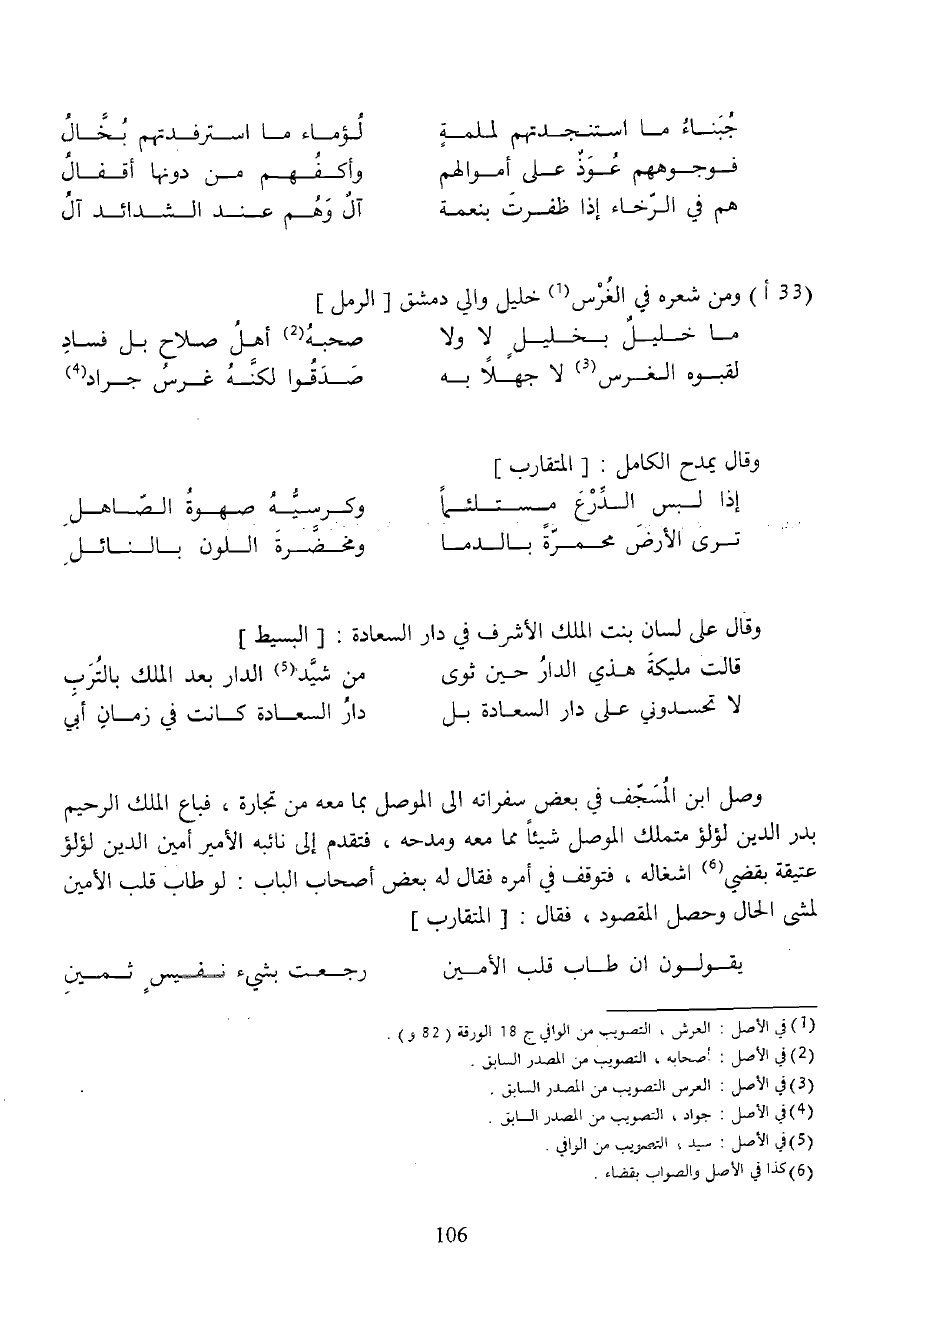 جُبَنَاءُ ما استنجدتهم لملمةٍ لُؤماء ما استرفدتهم بُخّالُ
فوجوههم عُوَذٌ على أموالهم وأكفُهم من دونها أقفالُ
هم في الرّخاء إذا ظفرتَ بنعمة آلٌ وَهُم عند الشدائد آلُ
(33 أ) ومن شعره في الغُرْس(1) خليل والي دمشق [ الرمل ]
ما خليلٌ بخليلٍ لا ولا صحبُهُ(2) أهلُ صلاحٍ بل فسادِ
لقبوه الغرس(3) لا جهلاً به صَدَقُوا لكنَّهُ غرسُ جرادِ(4)
وقال يمدح الكامل : [ المتقارب ]
إذا لبس الدّرْعَ مستلئماً وكرسيُّهُ صهوةُ الصّاهلِ
ترى الأرضَ محمرّةً بالدما ومخضرةَ اللون بالنائلِ
وقال على لسان بنت الملك الأشرف في دار السعادة : [ البسيط ]
قالت مليكةُ هذي الدارُ حين ثوى من شَيَّد(5) الدار بعد الملك بالتُربِ
لا تحسدوني على دار السعادة بل دارُ السعادة كانت في زمانِ أبي
وصل ابن المُسَجّف في بعض سفراته الى الموصل بما معه من تجارة ، فباع الملك الرحيم
بدر الدين لؤلؤ متملك الموصل شيئاً مما معه ومدحه ، فتقدم إلى نائبه الأمير أمين الدين لؤلؤ
عتيقة بقضي(6) اشغاله ، فتوقف في أمره فقال له بعض أصحاب الباب : لو طاب قلب الأمين
لمشى الحال وحصل المقصود ، فقال : [ المتقارب ]
يقولون ان طاب قلب الأمين رجعت بشيء نفيسٍ ثمين
(1) في الأصل : العرش ، التصويب من الوافي ج 18 الورقة ( 82 و ) .
(2) في الأصل : أصحابه ، التصويب من المصدر السابق .
(3) في الأصل : العرس التصويب من المصدر السابق .
(4) في الأصل : جواد ، التصويب من المصدر السابق .
(5) في الأصل : سيد ، التصويب من الوافي .
(6) كذا في الأصل والصواب بقضاء .
106